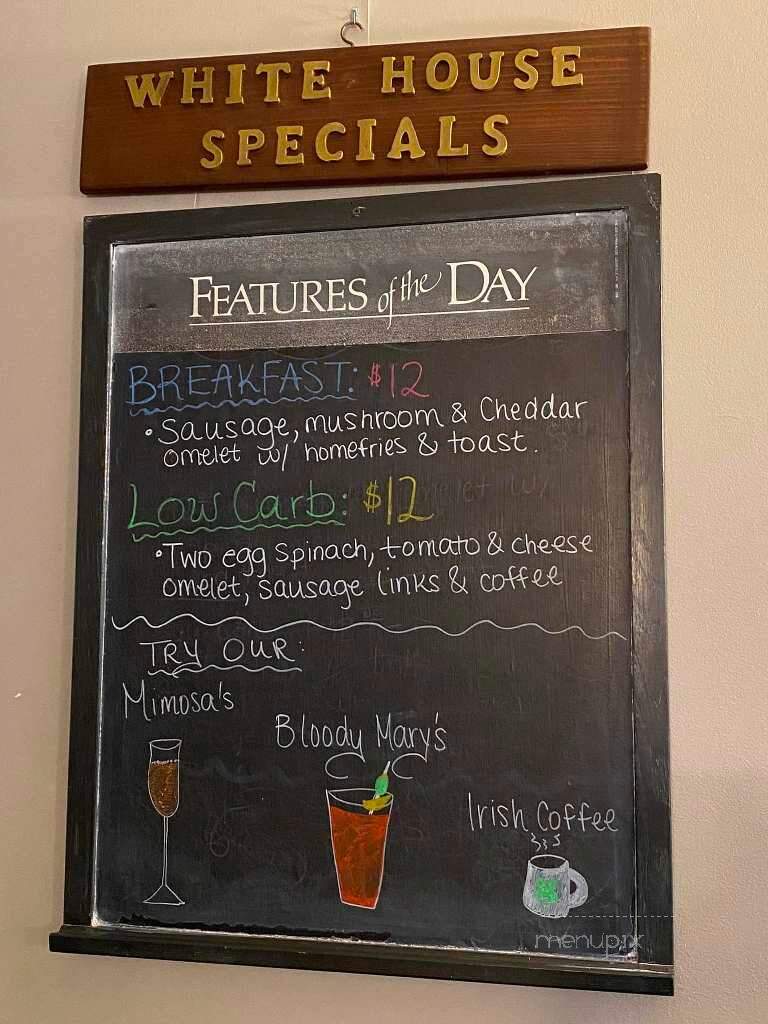 WHITE HOUSE
SPECIALS
FEATURES of the DAY
BREAKFAST: $12
• Sausage, mushroom & Cheddar
omelet w/ homefries & toast.
Low Carb: $12
• Two egg Spinach, tomato & cheese
omelet, sausage links & coffee
TRY OUR:
Mimosa's
Bloody Mary's
Irish Coffee
menupix